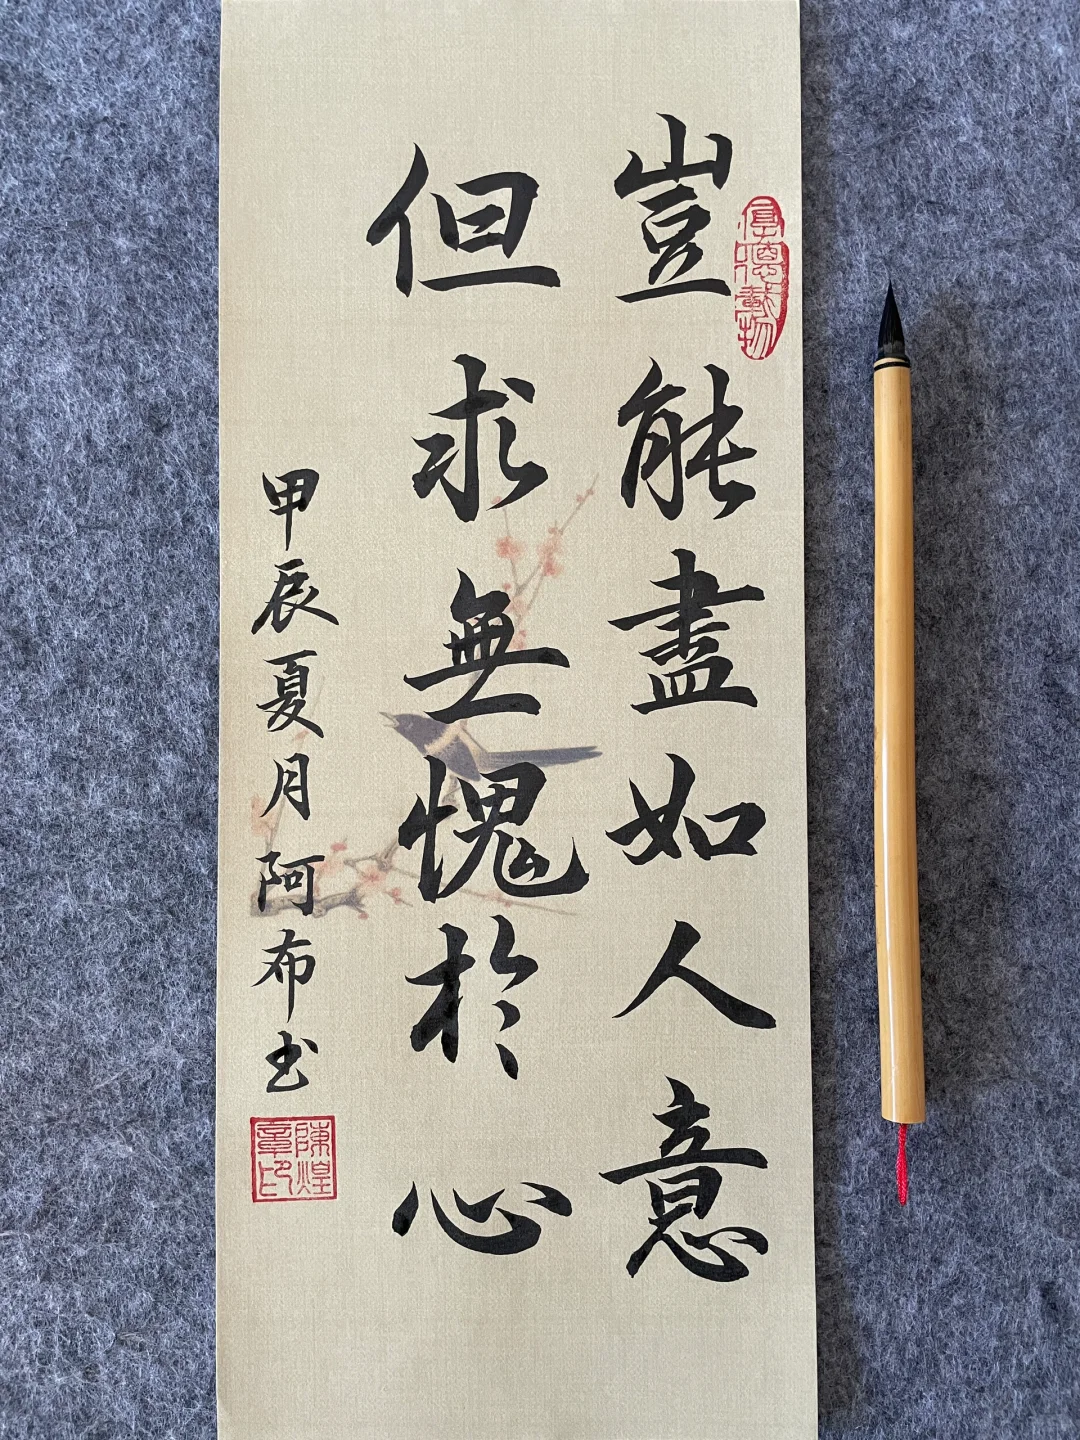 豈能盡如人意
厚德載物
但求無愧於心
甲辰夏月阿布书
陳煌
章印